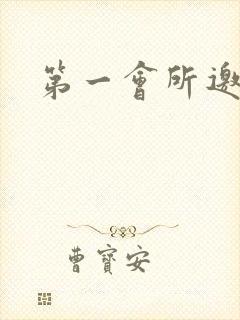 第一會所邀
曹寶安